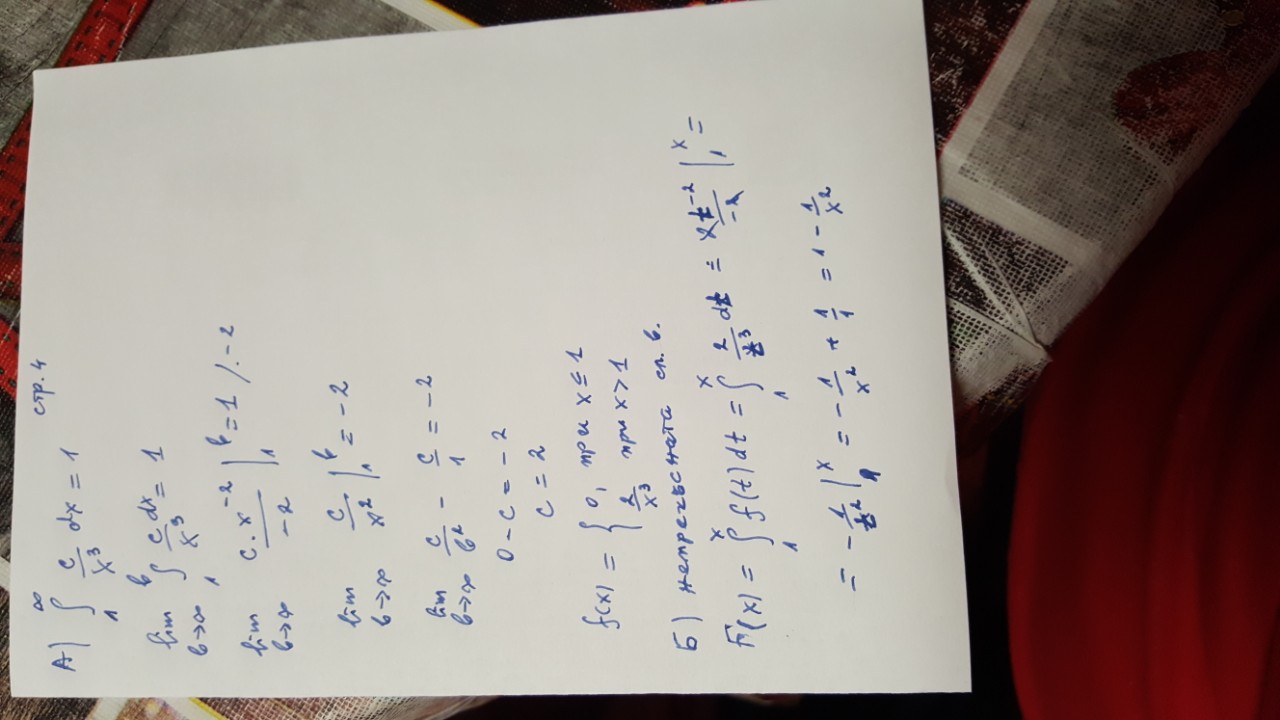 стр. 4
А) ∫₁^∞ c/x³ dx = 1
lim b→∞ ∫₁^b c dx/x³ = 1
lim b→∞ c·x⁻²/−2 |₁^b = 1 /.−2
lim b→∞ c/x² |₁^b = −2
lim b→∞ c/b² − c/1 = −2
0 − c = −2
c = 2
f(x) = { 0, при x ≤ 1
2/x³ при x > 1
Б) непрекъсната сл. в.
F(x) = ∫₁^x f(t) dt = ∫₁^x 2/t³ dt = 2t⁻²/−2 |₁^x =
= −1/t² |₁^x = −1/x² + 1/1 = 1 − 1/x²